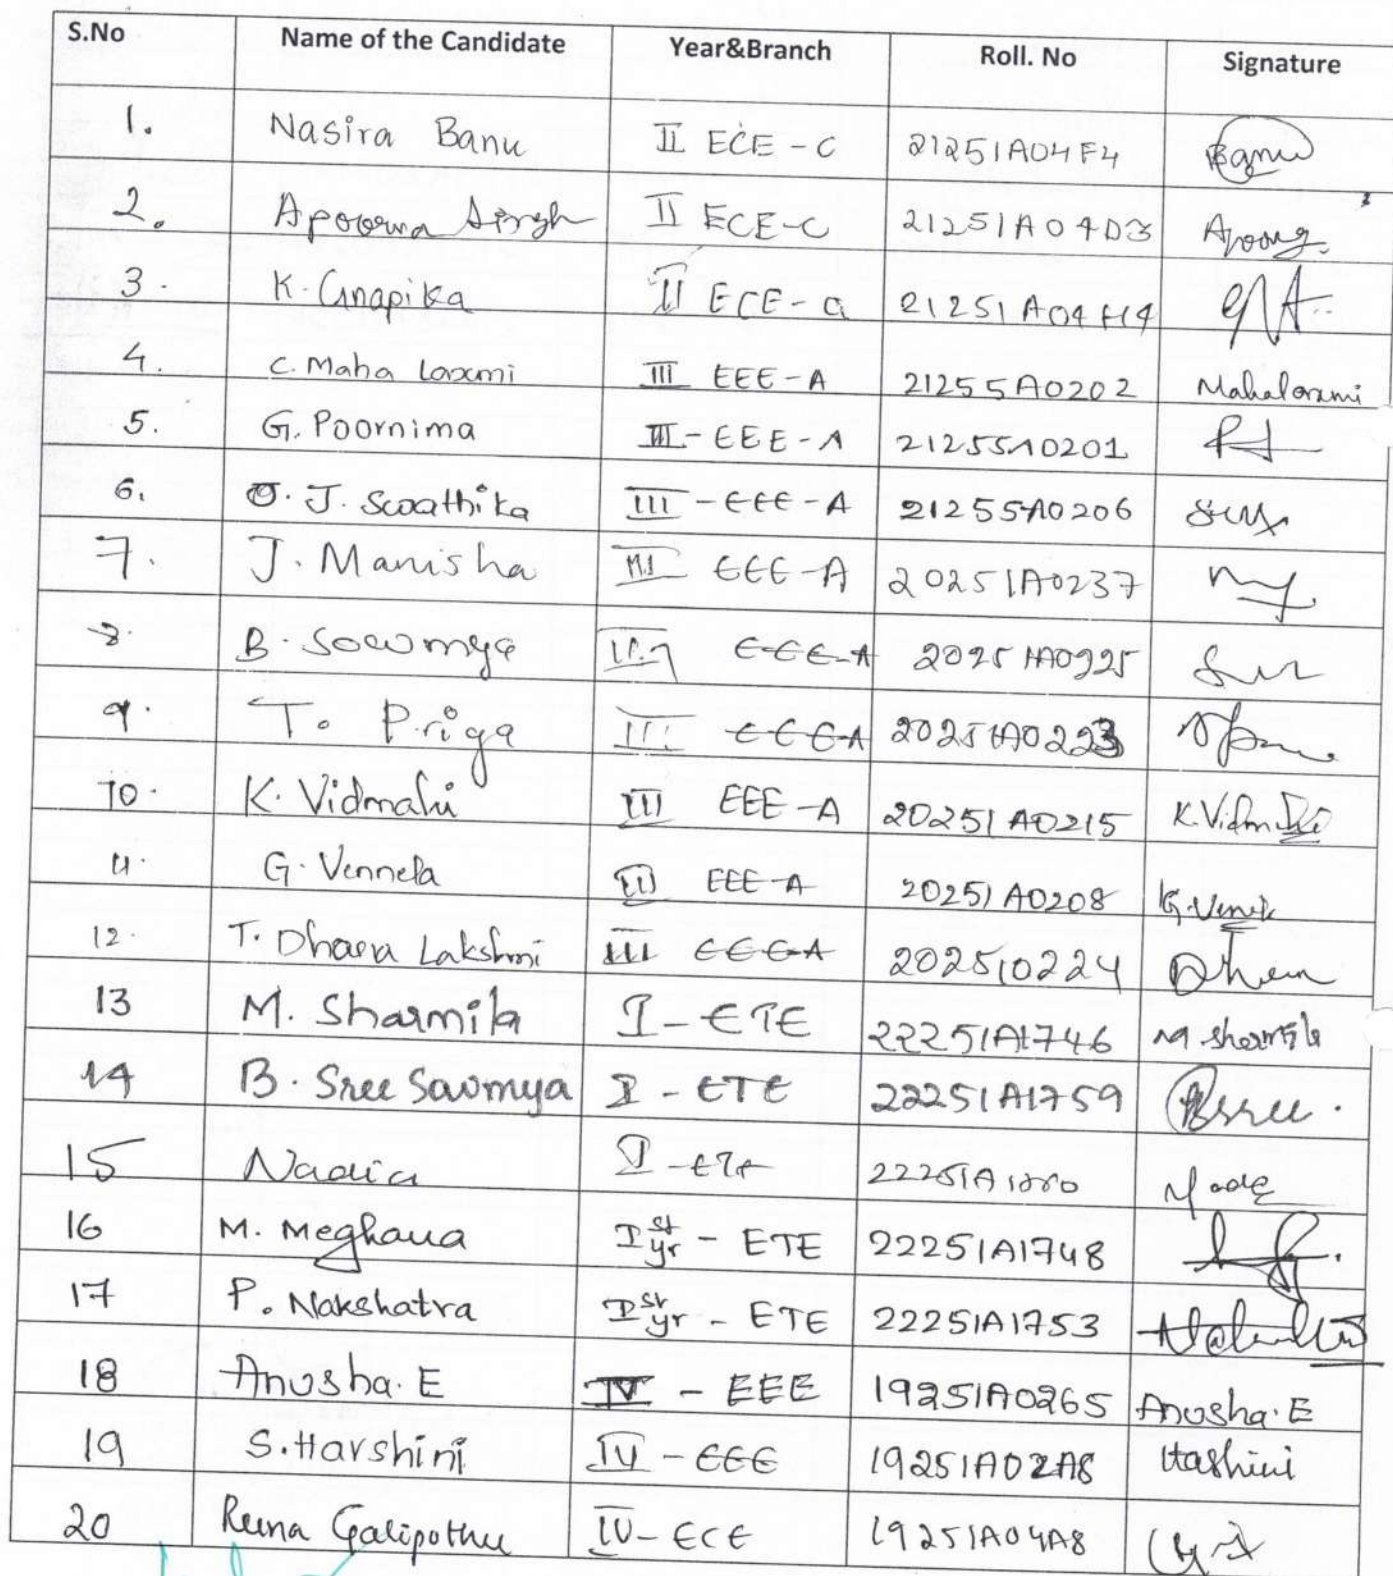 S.No Name of the Candidate Year&Branch Roll. No Signature
1. Nasira Banu II ECE - C 21251A04F4 Banu
2. Apoorna Singh II ECE-C 21251A04D3 Apoorg
3. K. Gnapika II ECE - C 21251A04H4
4. C. Maha Laxmi III EEE - A 21255A0202 Mahalaxmi
5. G. Poornima III - EEE - A 21255A0201
6. J. Swathika III - EEE - A 21255A0206
7. J. Manisha III EEE - A 20251A0237
8. B. Sowmya III EEE-A 20251A0225
9. T. Priya III EEE-A 20251A0223
10. K. Vidmahi III EEE - A 20251A0215 K. Vidmahi
11. G. Vennela III EEE - A 20251A0208
12. T. Dhana Lakshmi III EEE-A 202510224
13 M. Sharmila I - ETE 22251A1746 M sharmila
14 B. Sree Savmya I - ETE 22251A1759 Bsree.
15 Nadia I - ETE
16 M. Meghana Ist yr - ETE 22251A1748
17 P. Nakshatra Ist yr - ETE 22251A1753
18 Anusha. E IV - EEE 19251A0265 Anusha. E
19 S. Harshini IV - EEE 19251A02A8 Hashini
20 Reena Galipothu IV - ECE 19251A04A8